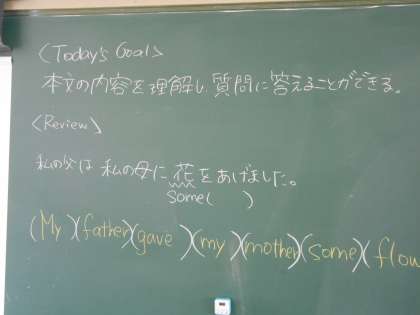 <Today's Goal>
本文の内容を理解し質問に答えることができる。
<Review>
私の父は 私の母に 花をあげました。
some( )
(My)(father)(gave)(my)(mother)(some)(flow